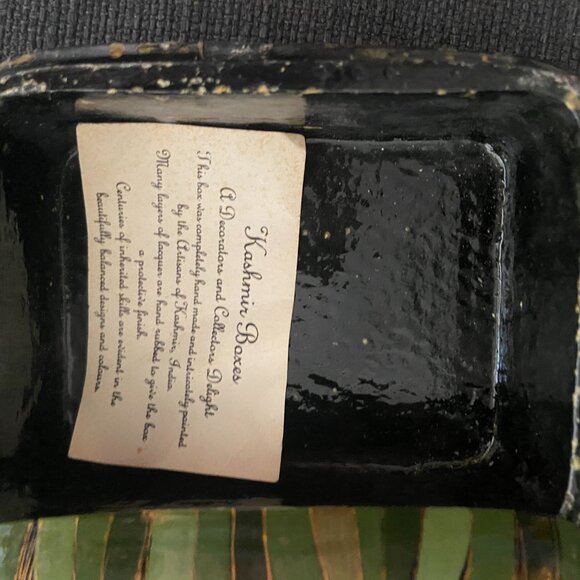 Kashmir Boxes
A Decorators and Collectors Delight
This box was completely hand made and intricately painted
by the Artisans of Kashmir, India.
Many layers of lacquer are hand rubbed to give the box
a protective finish.
Centuries of inherited skills are evident in the
beautifully balanced designs and colours.